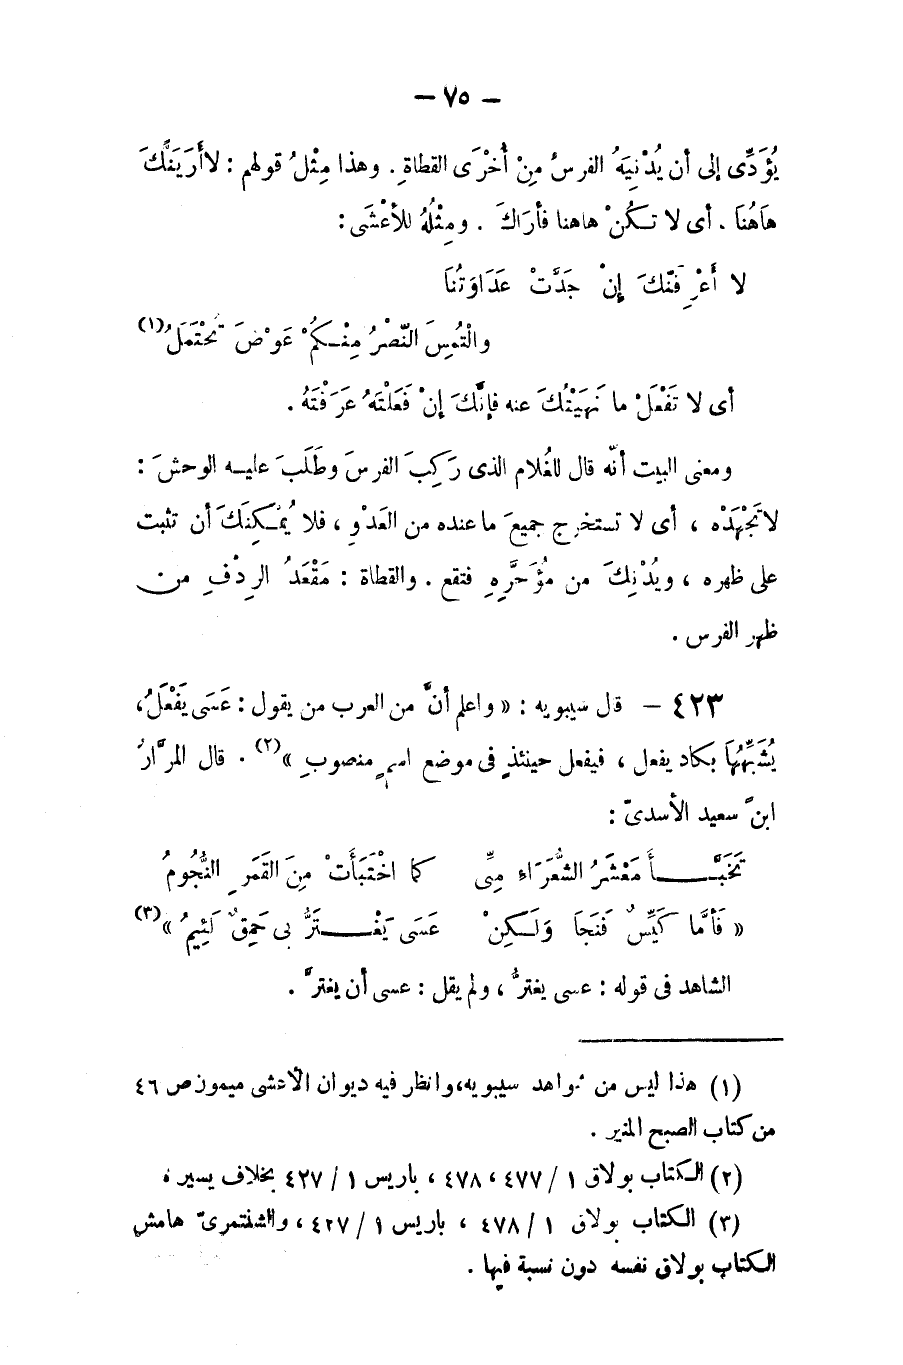 — ٧٥ —
يُؤَدِّى إلى أن يُدْنِيَهُ الفرسُ مِنْ أُخْرَى القطاةِ . وهذا مِثْلُ قولهم : لاأَرَيَنَّكَ
هَاهُنَا . أى لا تَكُنْ هاهنا فأرَاكَ . ومِثْلُهُ للأعْشَى :
لا أَعْرِفَنّكَ إِنْ جَدَّتْ عَدَاوَتُنَا
والْتُمِسَ النّصْرُ مِنْكُمْ عَوْضَ تَحْتَمَلُ(١)
أى لا تَفْعَلْ ما نَهَيْتُكَ عنه فإنَّكَ إنْ فَعَلْتَهُ عَرَفْتَهُ .
ومعنى البيت أنّه قال للغُلام الذى رَكِبَ الفرسَ وطَلَبَ عليه الوحشَ :
لاتَجْهَدْه ، أى لا تستخرِج جميعَ ماعنده من العَدْوِ ، فلا يُمْكِنَكَ أن تثبت
على ظهره ، ويُدْنِكَ من مُؤَخَّرِهِ فتقع . والقطاة : مَقْعَدُ الرِدْفِ من
ظهر الفرس .
٤٢٣ — قال سيبويه : « واعلم أنَّ من العرب من يقول : عَسَى يَفْعَلُ ،
يُشَبِّهُهَا بكاد يفعل ، فيفعل حينئذٍ فى موضع اسمٍ منصوبٍ »(٢) . قال المرَّارُ
ابنُ سعيد الأسدىّ :
تَخَبَّأَ مَعْشَرُ الشُّعَرَاءِ مِنِّى كما اخْتَبَأَتْ مِنَ القَمَرِ النُّجُومُ
« فَأَمَّا كَيِّسٌ فَنَجَا وَلَكِنْ عَسَى يَغْتَرُّ بِى حَمِقٌ لَئِيمُ »(٣)
الشاهد فى قوله : عسى يغترُّ ، ولم يقل : عسى أن يغترَّ .
(١) هذا ليس من شواهد سيبويه،وانظر فيه ديوان الأعشى ميمون ص ٤٦
من كتاب الصبح المنير .
(٢) الكتاب بولاق ١ / ٤٧٧ ، ٤٧٨ ، باريس ١ / ٤٢٧ بخلاف يسير .
(٣) الكتاب بولاق ١ / ٤٧٨ ، باريس ١ / ٤٢٧ ، والشنتمرىّ هامش
الكتاب بولاق نفسه دون نسبة فيها .